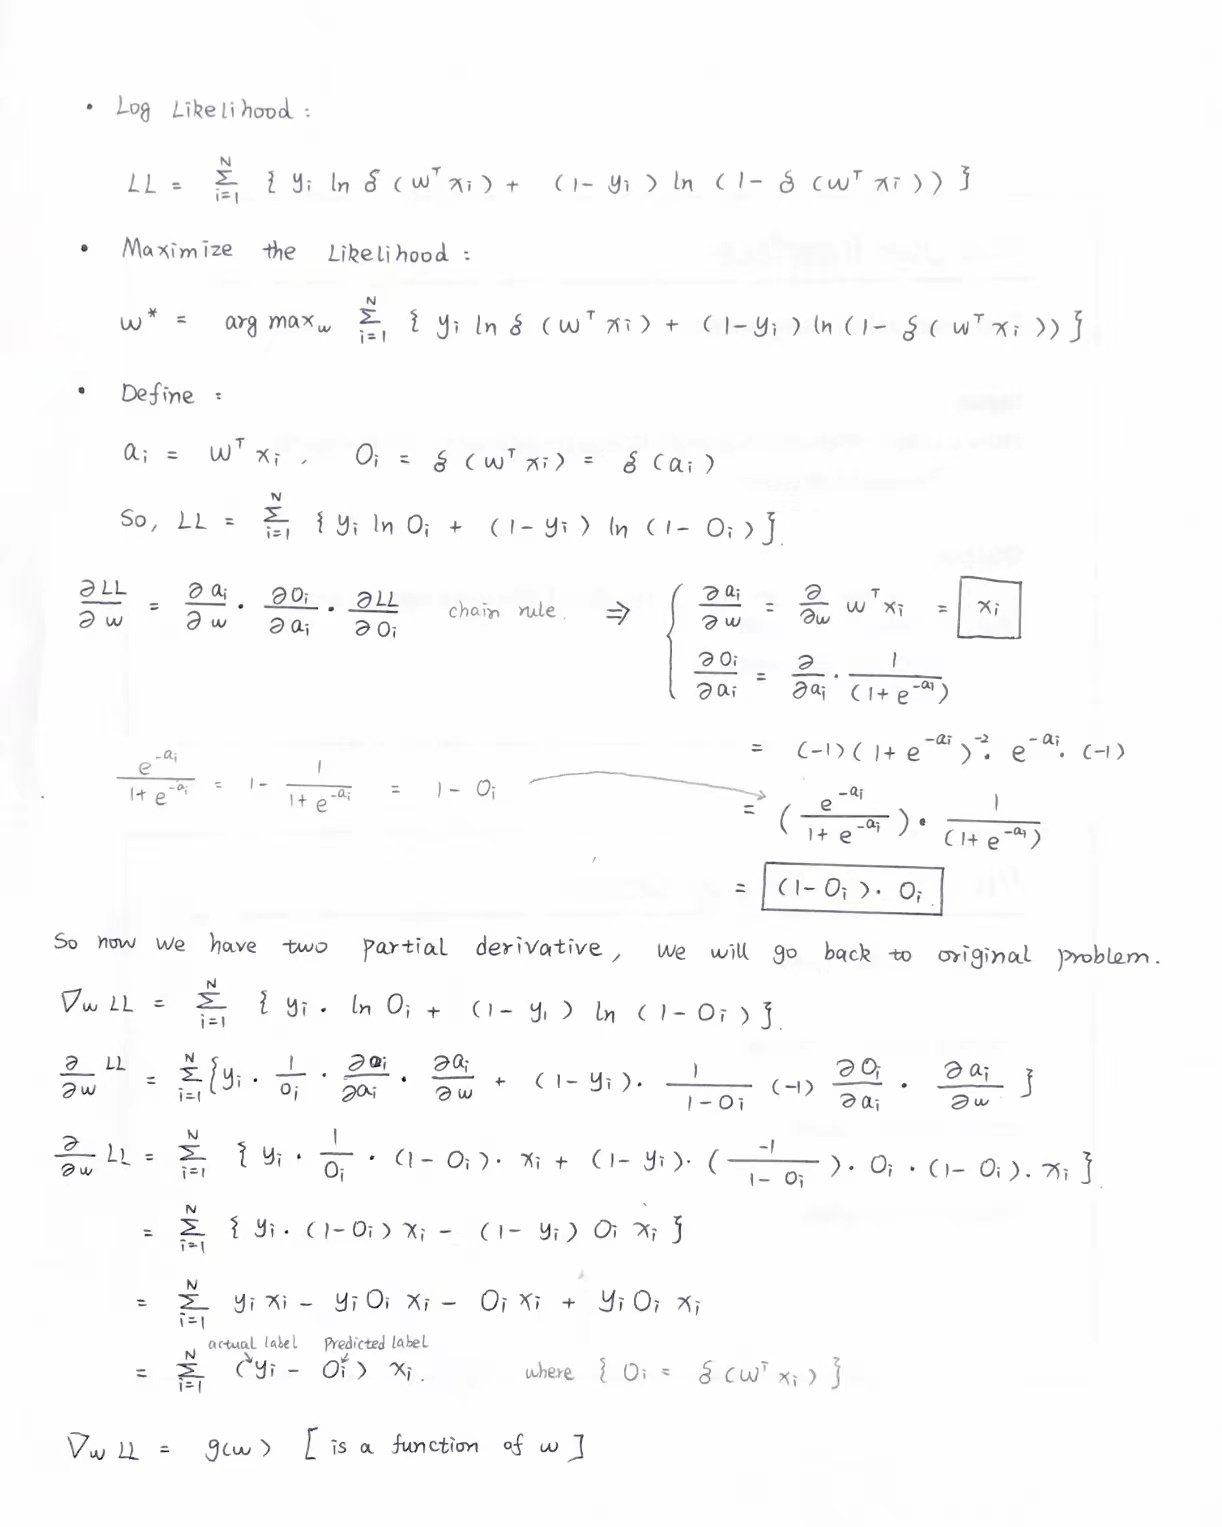 • Log Likelihood :
LL = Σ_{i=1}^{N} { y_i ln δ (w^T x_i) + (1 - y_i) ln (1 - δ (w^T x_i)) }
• Maximize the Likelihood :
w* = arg max_w Σ_{i=1}^{N} { y_i ln δ (w^T x_i) + (1 - y_i) ln (1 - δ (w^T x_i)) }
• Define :
a_i = w^T x_i , O_i = δ (w^T x_i) = δ (a_i)
So, LL = Σ_{i=1}^{N} { y_i ln O_i + (1 - y_i) ln (1 - O_i) }.
∂LL/∂w = ∂a_i/∂w · ∂O_i/∂a_i · ∂LL/∂O_i chain rule. ⇒ { ∂a_i/∂w = ∂/∂w w^T x_i = x_i
∂O_i/∂a_i = ∂/∂a_i · 1/(1 + e^{-a_i})
= (-1) (1 + e^{-a_i})^{-2} · e^{-a_i} · (-1)
e^{-a_i}/(1 + e^{-a_i}) = 1 - 1/(1 + e^{-a_i}) = 1 - O_i
= (e^{-a_i}/(1 + e^{-a_i})) · 1/(1 + e^{-a_i})
= (1 - O_i) · O_i.
So now we have two partial derivative, we will go back to original problem.
∇_w LL = Σ_{i=1}^{N} { y_i · ln O_i + (1 - y_i) ln (1 - O_i) }.
∂/∂w LL = Σ_{i=1}^{N} { y_i · 1/O_i · ∂O_i/∂a_i · ∂a_i/∂w + (1 - y_i) · 1/(1 - O_i) (-1) ∂O_i/∂a_i · ∂a_i/∂w }
∂/∂w LL = Σ_{i=1}^{N} { y_i · 1/O_i · (1 - O_i) · x_i + (1 - y_i) · (-1/(1 - O_i)) · O_i · (1 - O_i) · x_i }.
= Σ_{i=1}^{N} { y_i · (1 - O_i) x_i - (1 - y_i) O_i x_i }
= Σ_{i=1}^{N} y_i x_i - y_i O_i x_i - O_i x_i + y_i O_i x_i
actual label Predicted label
= Σ_{i=1}^{N} (y_i - O_i) x_i . where { O_i = δ (w^T x_i) }
∇_w LL = g(w) [ is a function of w ]